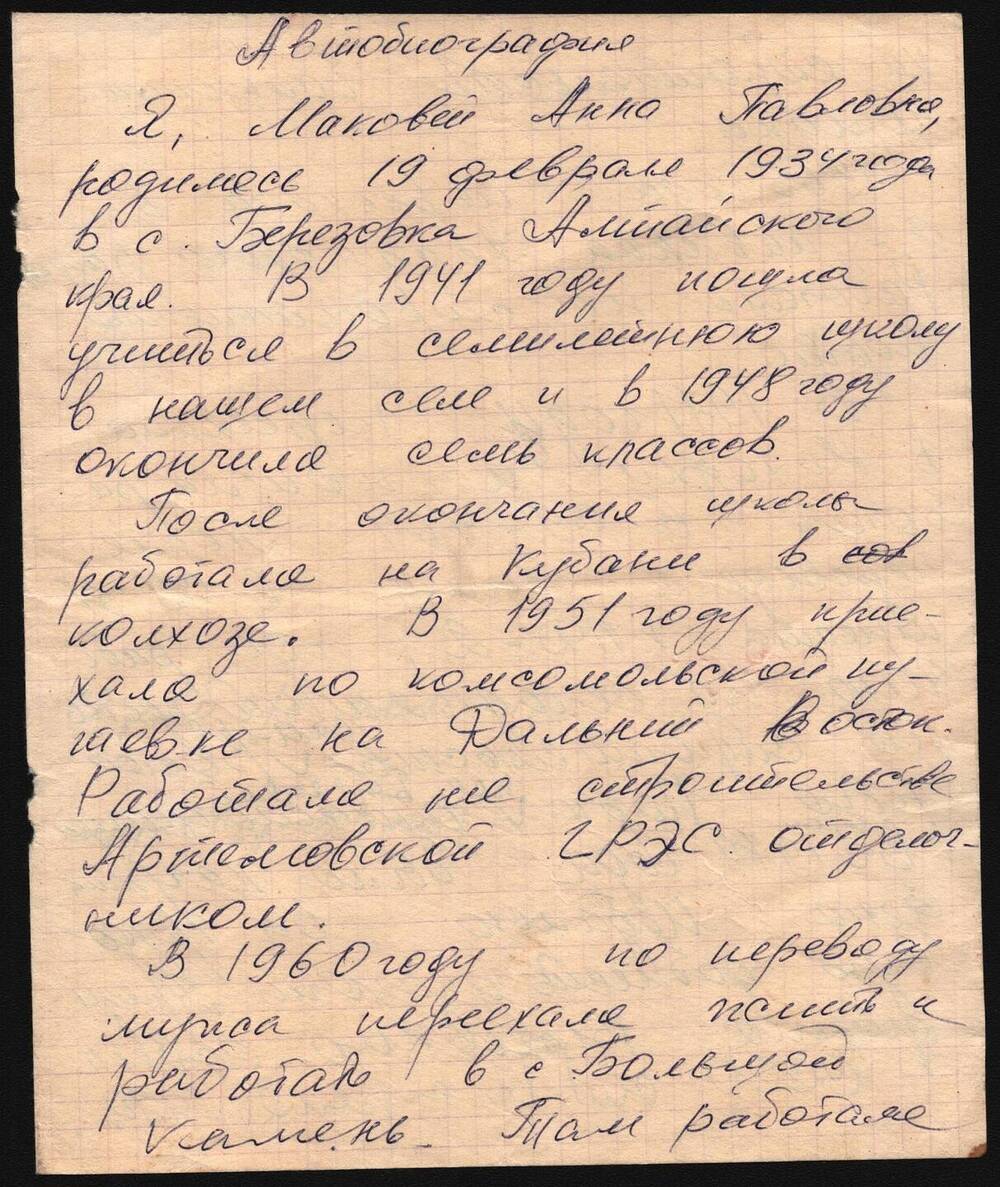 Автобиография
Я, Маковей Анна Павловна,
родилась 19 февраля 1934 года
в с. Березовка Алтайского
края. В 1941 году пошла
учиться в семилетнюю школу
в нашем селе и в 1948 году
окончила семь классов.
После окончания школы
работала на Кубани в сов
колхозе. В 1951 году прие-
хала по комсомольской пу-
тевке на Дальний Восток.
Работала на строительстве
Артемовской ГРЭС отделоч-
ником.
В 1960 году по переводу
мужа переехала жить и
работать в с. Большой
Камень. Там работала